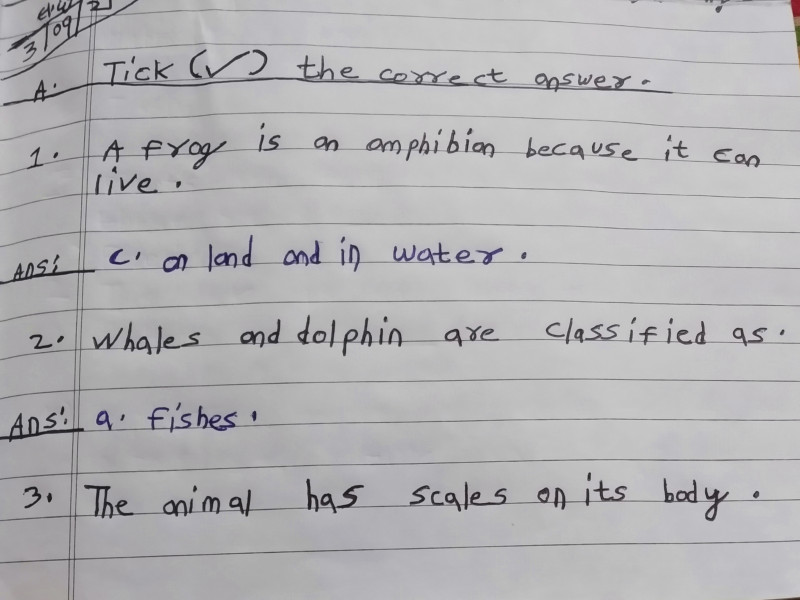 3/09/2
A. Tick (✓) the correct answer.
1. A frog is an amphibian because it can
live.
Ans: c. on land and in water.
2. Whales and dolphin are classified as.
Ans: a. fishes.
3. The animal has scales on its body.